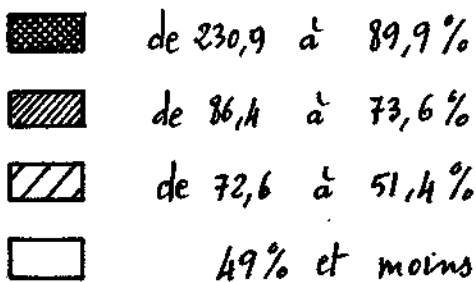 de 230,9 à 89,9%
de 86,4 à 73,6%
de 72,6 à 51,4%
49% et moins